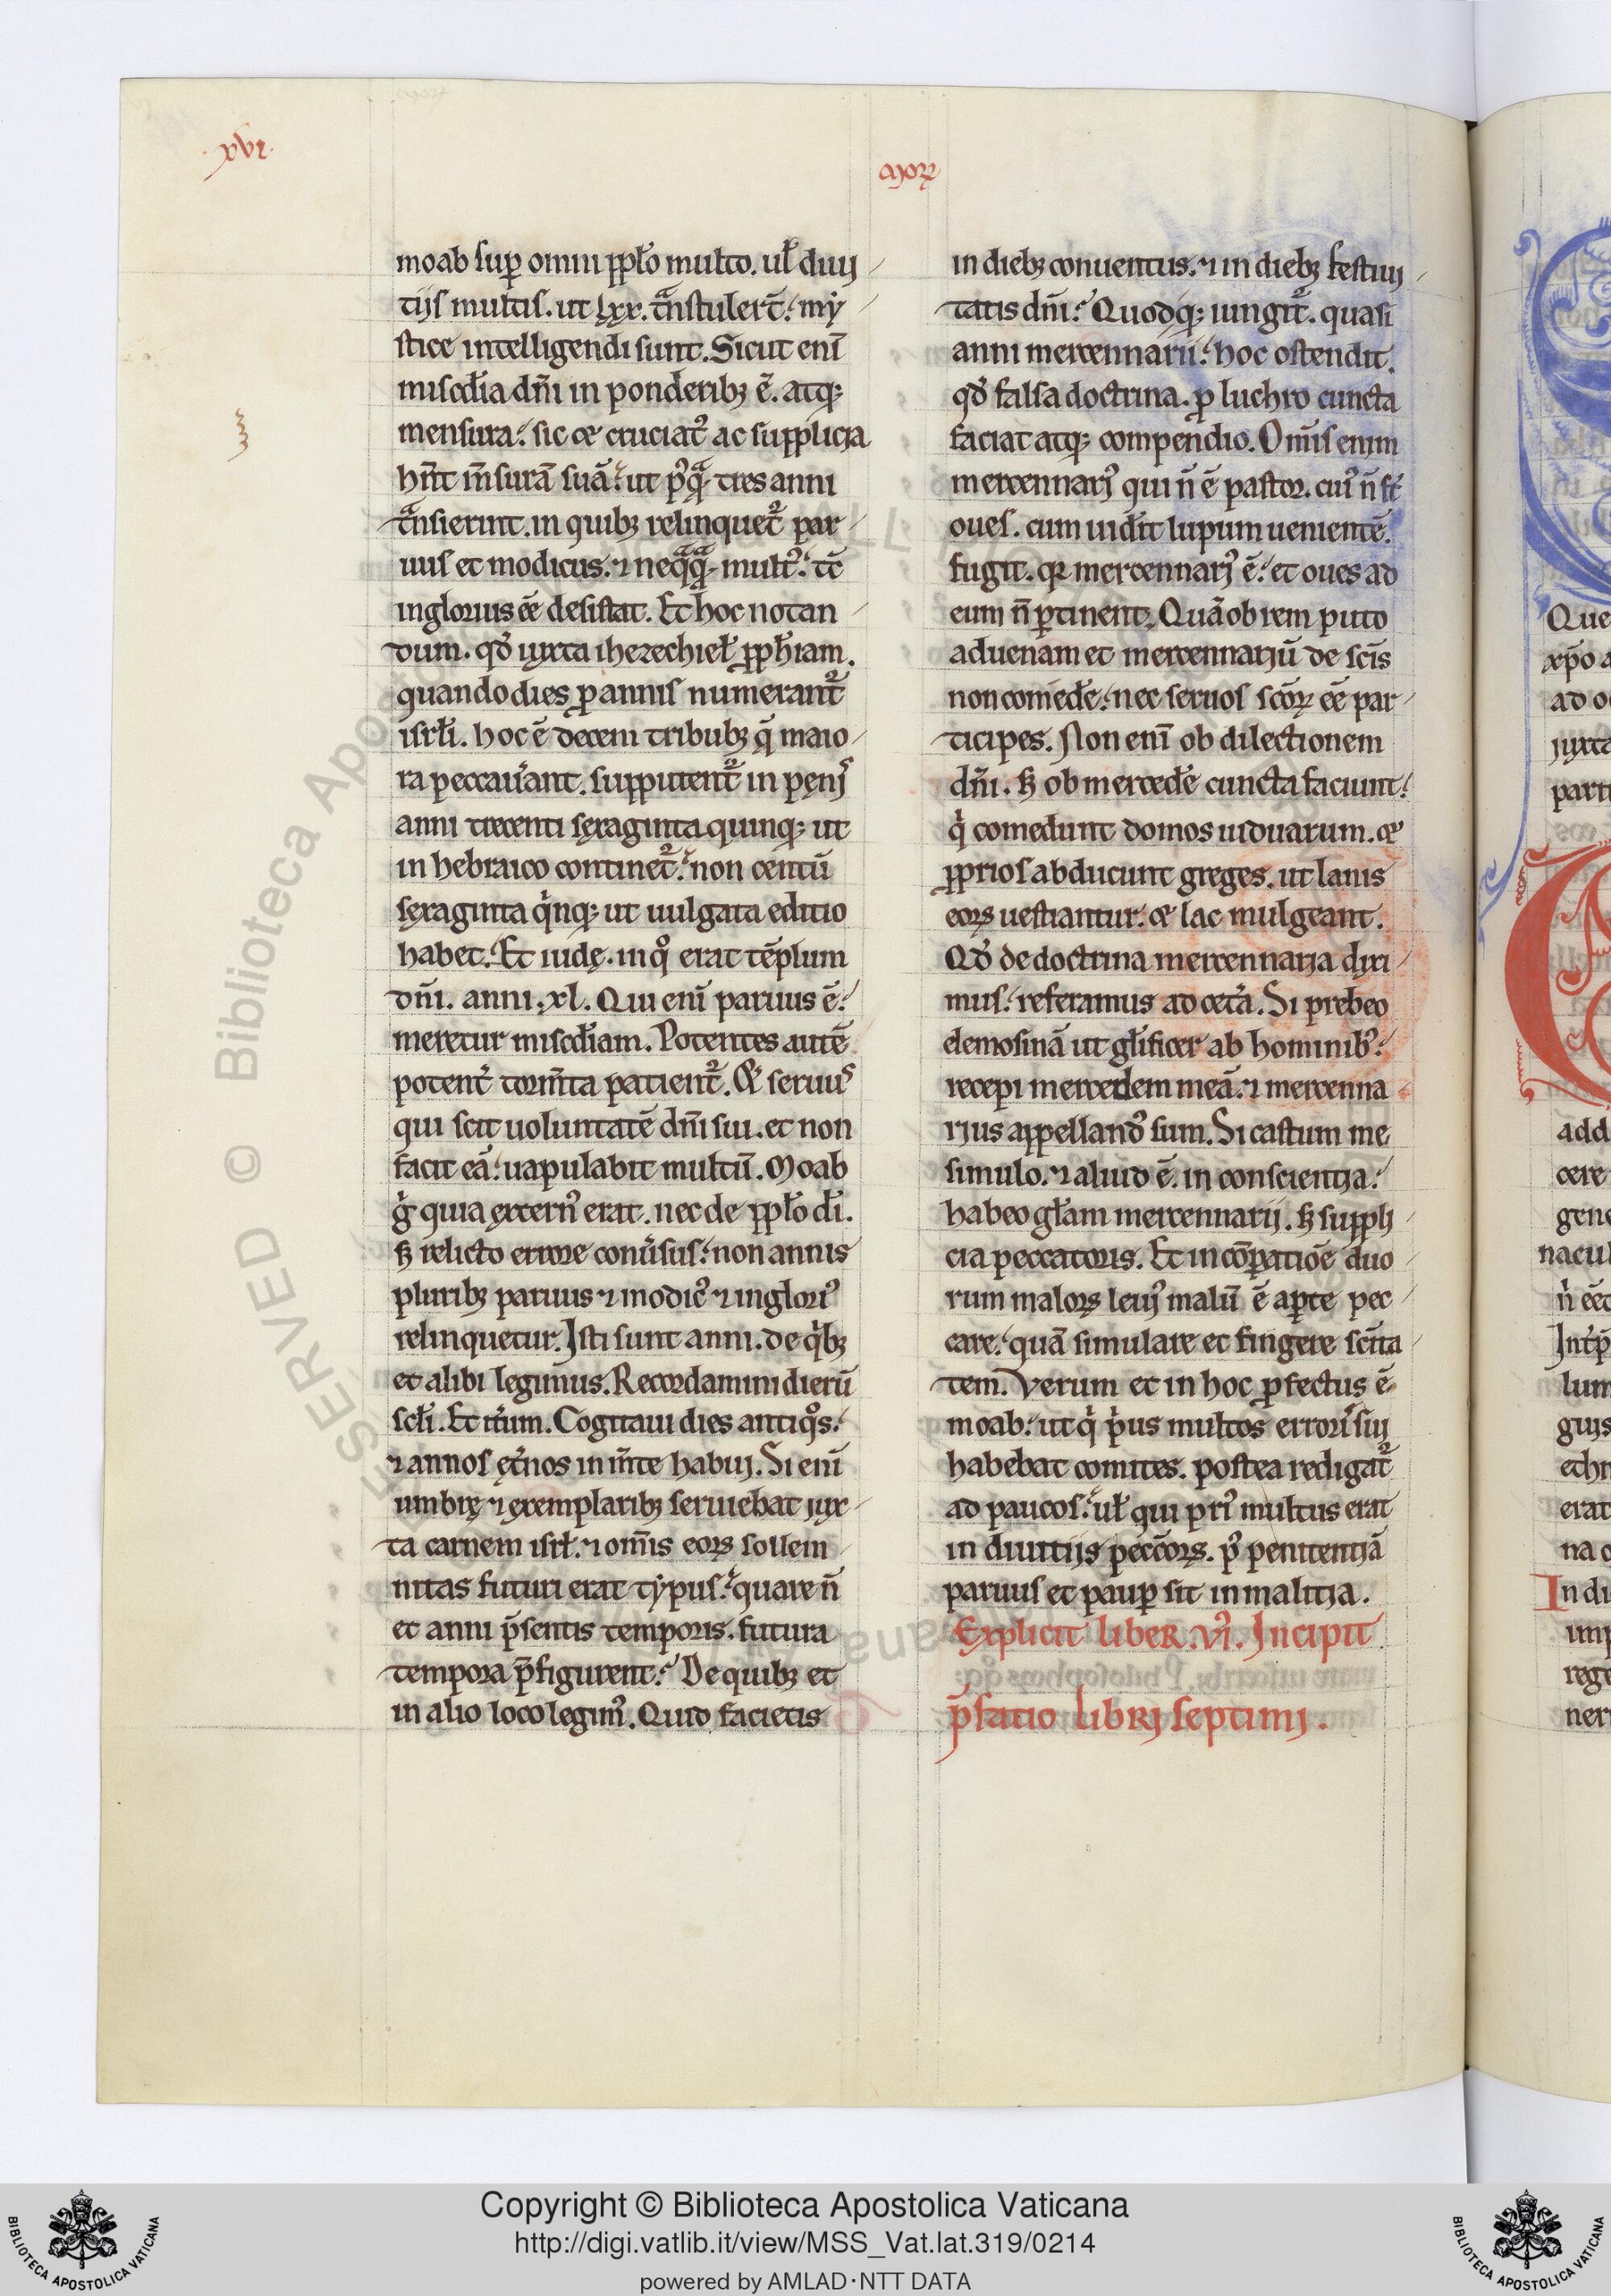 xvi.
moab sup̱ omni pp̱ło multo. uł diui
tijs multis. ut lxx. t̃nstulerт̃. my
stice intelligendi sunt. Sicut enī
misc̄dia dñi in ponderibꝫ ē. atqꝫ
mensura. sic ⁊ cruciat᷒ ac supplicia
hñt m̄surā suā. ut p᷒qᷓ tres anni
tᷓnsierint. in quibꝫ relinquet᷑ par
uus et modicus. ⁊ neqᷓqᷓ mult᷒. t̄c
inglorius ēē desistat. Et hoc notan
dum. qd̓ iuxta ihezechieł ꝓph̄iam.
quando dies ꝑ annis numerant᷑
isrłi. hoc ē decem tribubꝫ q̄ maio
ra peccau̓ant. supputent᷑ in pęnis
anni trecenti sexaginta quinqꝫ ut
in hebraico continet᷑. non centū
sexaginta qͥnqꝫ ut uulgata editio
habet. Et iudę. in qͦ erat tēplum
dñi. anni. xl. Qui enī paruus ē.
meretur misc̄diam. Potentes autē
potent̓ torm̄ta patient᷑. Et seruus
qui scit uoluntatē dñi sui. et non
facit eā. uapulabit multū. Moab
gͥ quia extern᷒ erat. nec de pp̱ło di̅.
sꝫ relicto errore conu̓sus. non annis
pluribꝫ paruus ⁊ modic᷒ ⁊ inglori᷒
relinquetur. Isti sunt anni. de qͥbꝫ
et alibi legimus. Recordamini dierū
scłi. Et it̓um. Cogitaui dies antiqͦs.
⁊ annos et̓nos in m̄te habui. Si enī
umbrę ⁊ exemplaribꝫ seruiebat iux
ta carnem isrł. ⁊ om̄is eoꝝ sollem
nitas futuri erat typus. quare ñ
et anni p̄sentis temporis. futura
tempora p̄figurent. De quibꝫ et
in alio loco legim᷒. Quid facietis
in diebꝫ conuentus. ⁊ in diebꝫ festiui
tatis dñi. Quodqꝫ iungit᷑. quasi
anni mercennarii. hoc ostendit.
qd̓ falsa doctrina. ꝓ luchro cuncta
faciat atqꝫ compendio. Om̄is enim
mercennari᷒ qui ñ ē pastor. cui᷒ ñ st̄
oues. cum uid̓it lupum uenientē.
fugit. qꝛ mercennari᷒ ē. et oues ad
eum ñ ꝑtinent. Quāobrem puto
aduenam et mercennariū de sc̄is
non comed̓e. nec seruos sc̄oꝝ ēē par
ticipes. Non enī ob dilectionem
dñi. sꝫ ob mercedē cuncta faciunt.
qͥ comedunt domos uiduarum. ⁊
ꝓprios abducunt greges. ut lanis
eoꝝ uestiantur. ⁊ lac mulgeant.
Qd̓ de doctrina mercennaria dixi
mus. referamus ad cet̓a. Si prebeo
elemosinā ut głificer ab hominib᷒.
recepi mercedem meā. ⁊ mercenna
rius appelland᷒ sum. Si castum me
simulo. ⁊ aliud ē. in conscientia.
habeo głam mercennarii. sꝫ suppli
cia peccatoris. Et in cōpatiōe duo
rum maloꝝ leui᷒ malū ē aꝑte pec
care. quā simulare et fingere sc̄ita
tem. Verum et in hoc ꝓfectus ē
moab. ut qͥ pͥus multos erroris sui
habebat comites. postea redigat᷑
ad paucos. uł qui pri᷒ multus erat
in diuitiis pecc̄oꝝ. p᷒ penitentiā
paruus et pauꝑ sit in malitia.
Explicit liber. vi. Incipit
p̄fatio libri septimi.
Que
xp̄o a
ad o
iuxta
parti
add
cere
gene
nacul
lum
guis
ethn
erat
na o
In di
imp
rege
ner
Copyright © Biblioteca Apostolica Vaticana
http://digi.vatlib.it/view/MSS_Vat.lat.319/0214
powered by AMLAD·NTT DATA
BIBLIOTECA APOSTOLICA VATICANA
BIBLIOTECA APOSTOLICA VATICANA